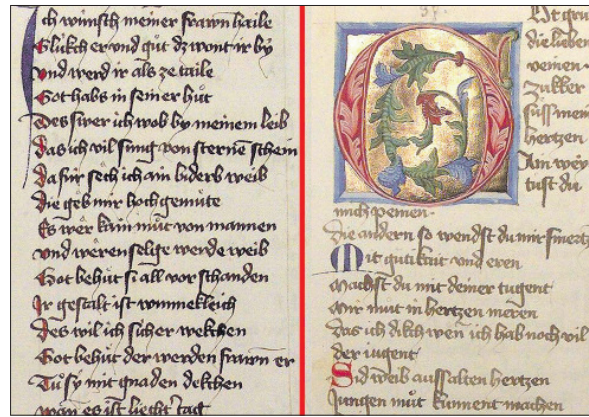 ch wünsch meiner frawn haile
Glükch er vnd gůt dz wont ir by
vnd werd ir als ze taile
Got habs in seiner hůt
Des swer ich wob by meinem leib
Das ich vil sung von sternē schem
Da für sech ich ain biderb weib
Die geb mir hochgemüte
Es wer kain můt von mannen
vnd weren selge werde weib
Got behůt si all vor schanden
Ir gestalt ist wunnekleich
Des wil ich sicher wekchen
Got behůt der werden frawn er
Tů sy mit gnaden dekchen
wan es ist liecht tag
Ot gru
die lieben
veinen
zukker
süss mein
hertzen
Am wey
tust du
mich peinen
Die andern so wendst du mir smertz
Mit güti laut vnd eren
Machst du mit deiner tugent
Mir mut in hertzen meren
Das ich dikch wen ich hab noch vil
der iugent
Sid weib aussalten hertzen
Jungen můt kunnent machen